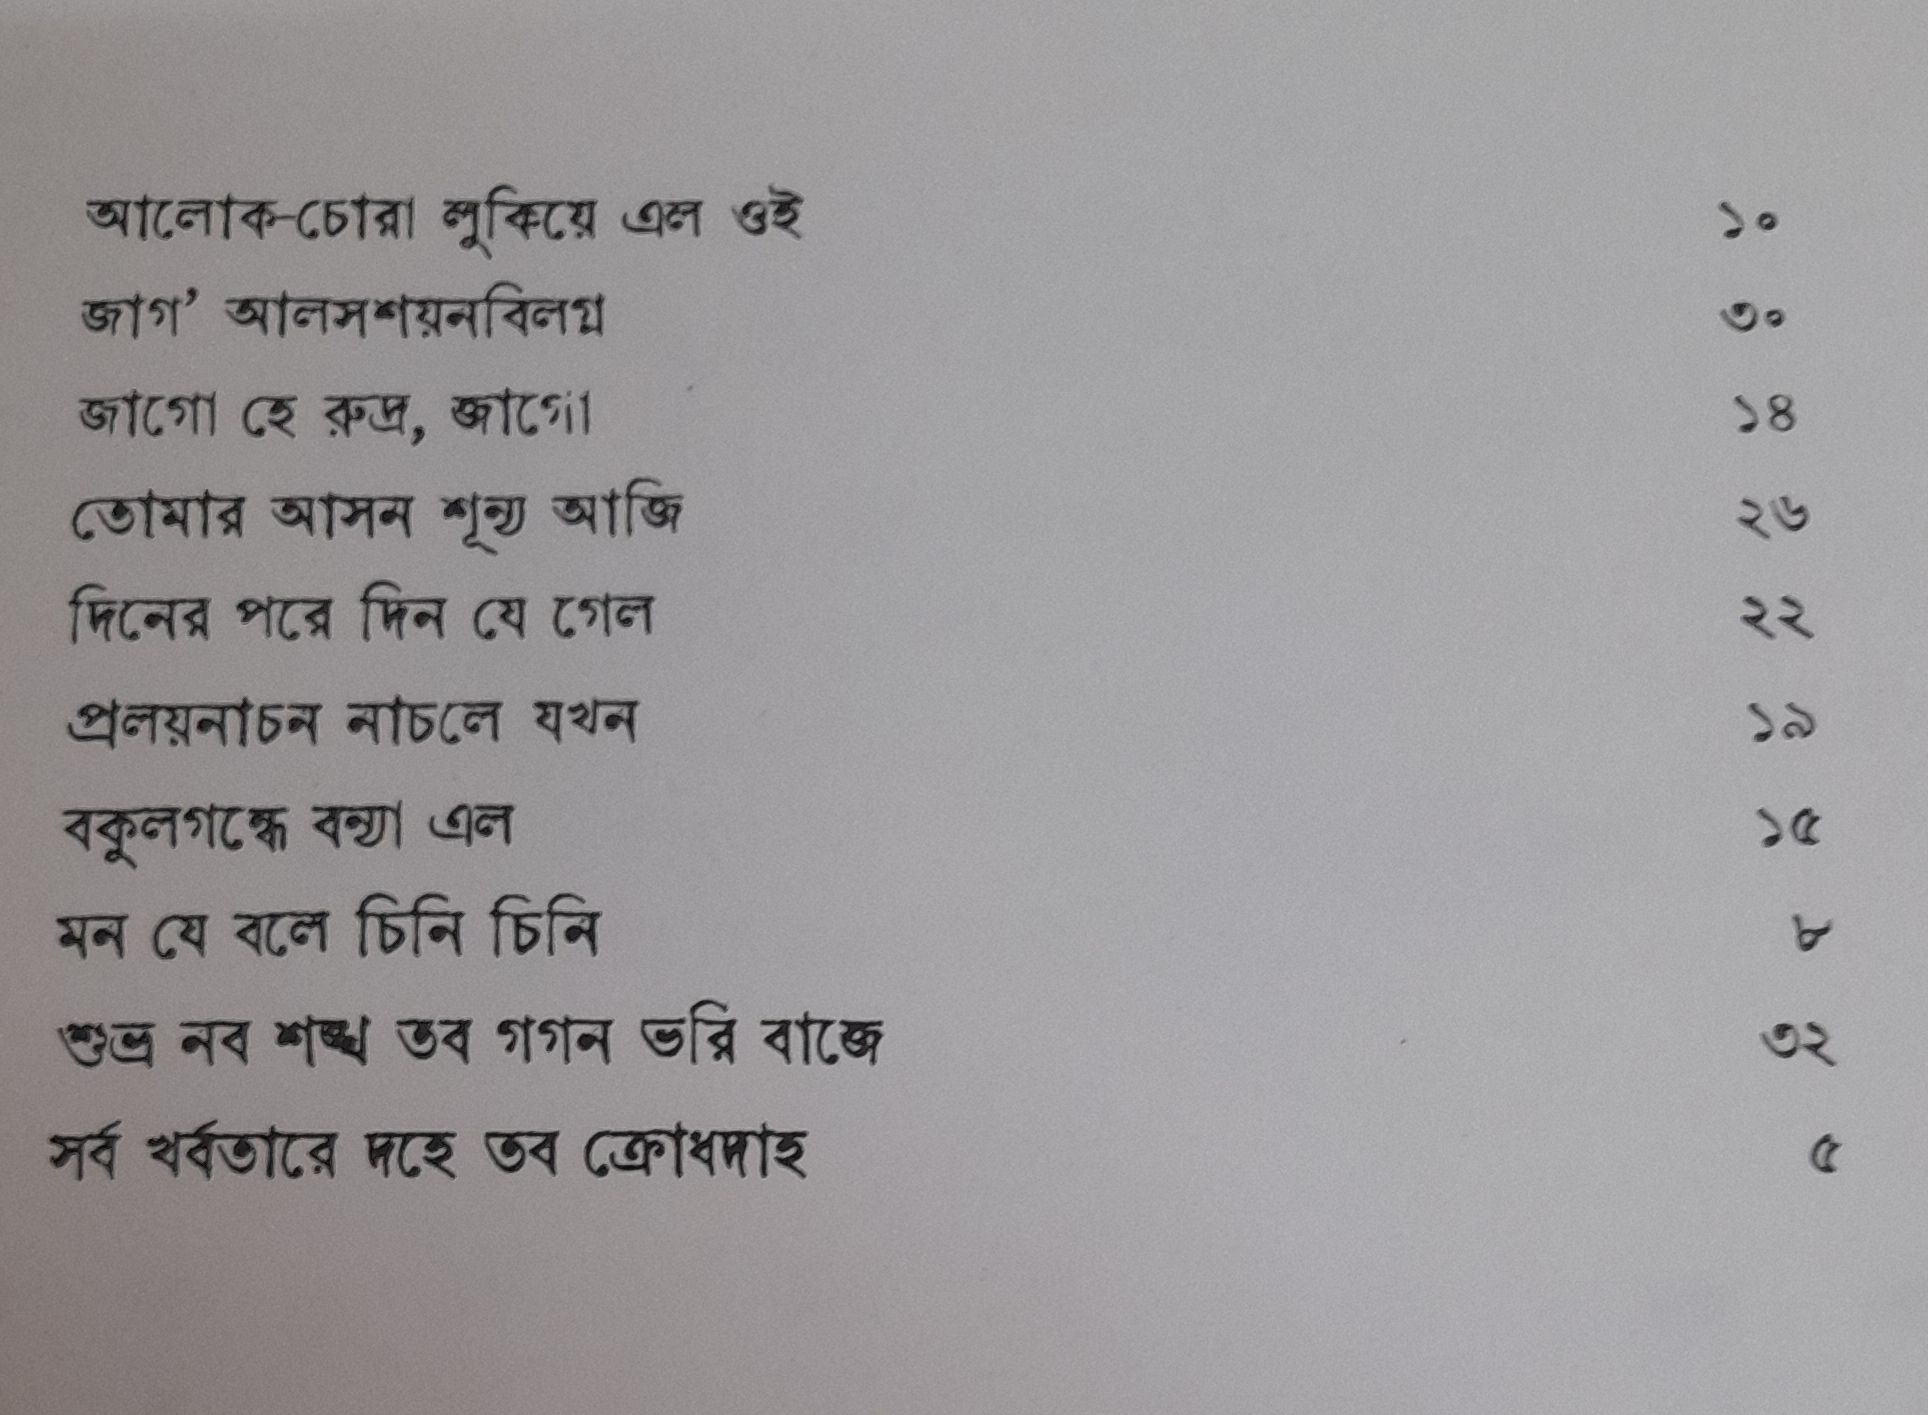 আলোক-চোরা লুকিয়ে এল ওই ১০
জাগ’ আলসশয়নবিলগ্ন ৩০
জাগো হে রুদ্র, জাগো ১৪
তোমার আসন শূন্য আজি ২৬
দিনের পরে দিন যে গেল ২২
প্রলয়নাচন নাচলে যখন ১৯
বকুলগন্ধে বন্যা এল ১৫
মন যে বলে চিনি চিনি ৮
শুভ্র নব শঙ্খ তব গগন ভরি বাজে ৩২
সর্ব খর্বতারে দহে তব ক্রোধদাহ ৫